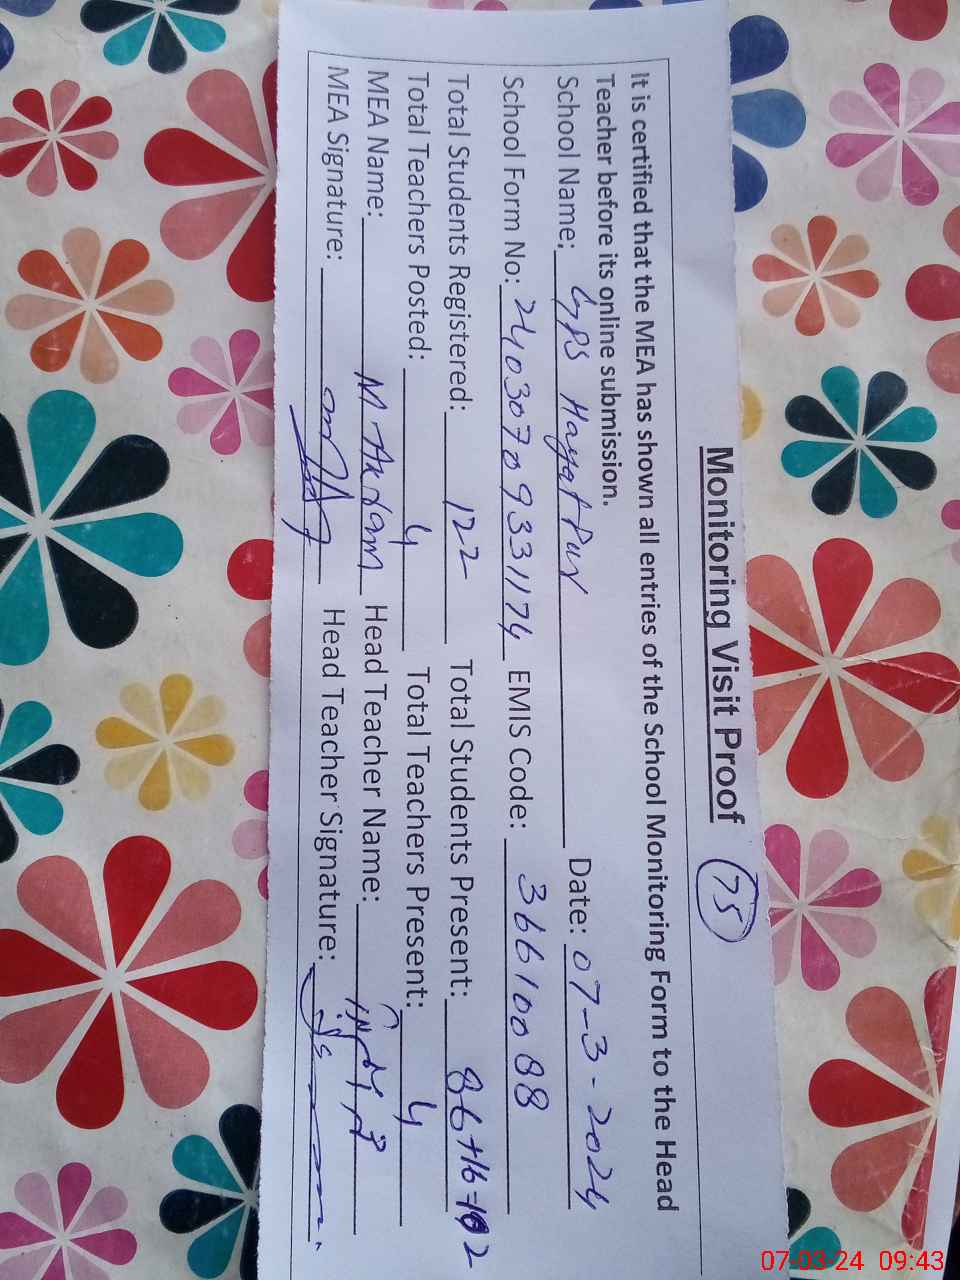 Monitoring Visit Proof 75
It is certified that the MEA has shown all entries of the School Monitoring Form to the Head
Teacher before its online submission.
School Name: GPS Hayat Pur Date: 07-3-2024
School Form No: 24030709331174 EMIS Code: 36610088
Total Students Registered: 122 Total Students Present: 86+16=102
Total Teachers Posted: 4 Total Teachers Present: 4
MEA Name: M Akram Head Teacher Name:
MEA Signature: Head Teacher Signature:
07-03-24 09:43